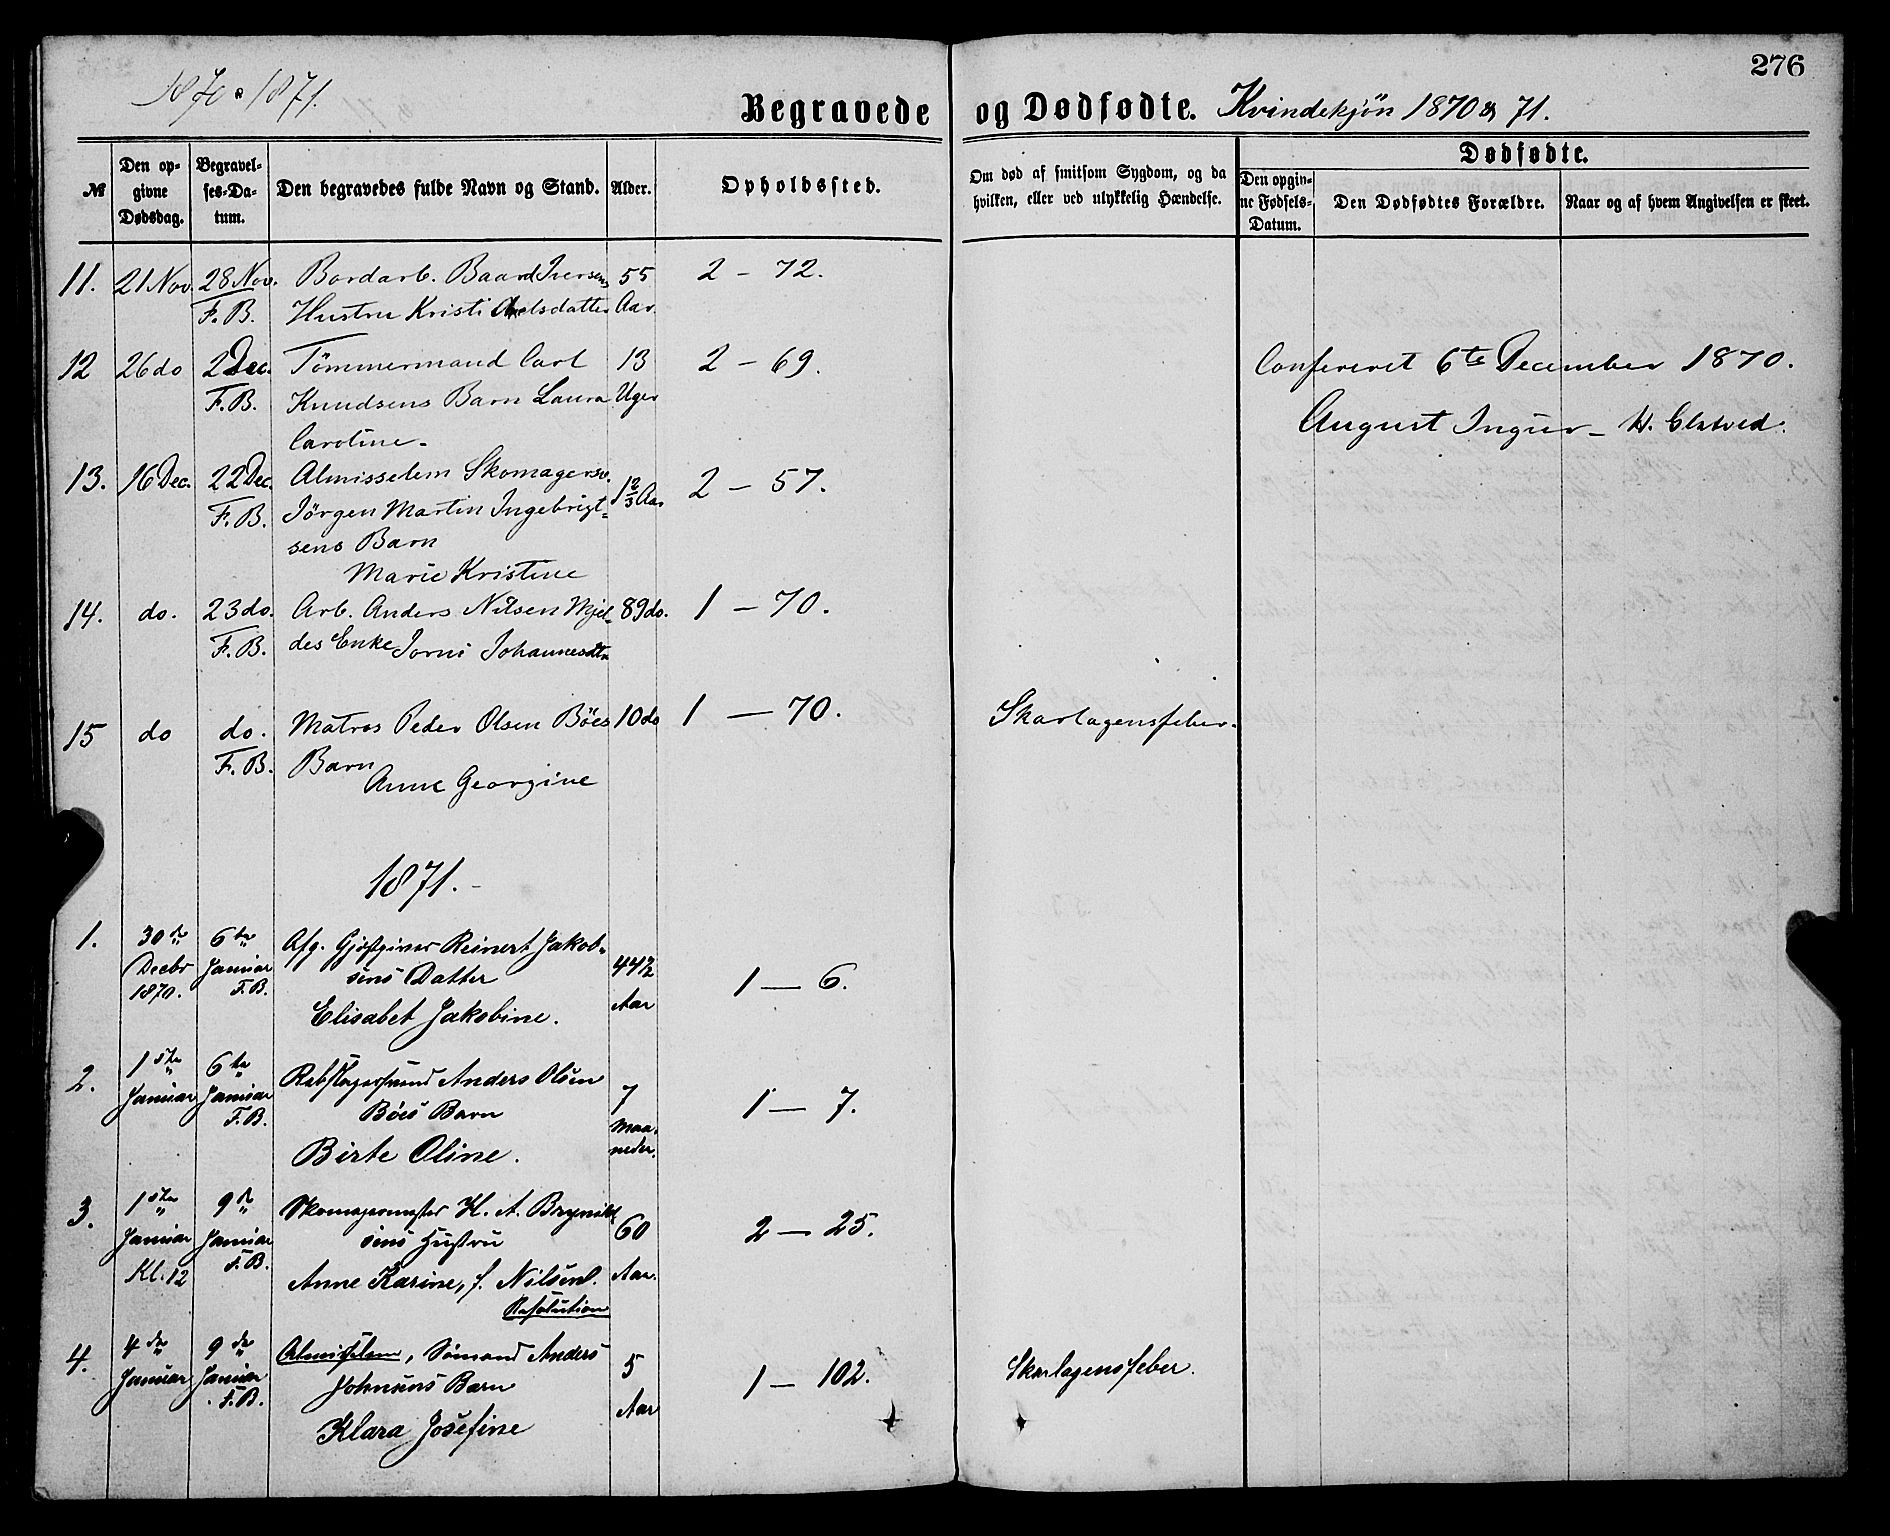 276
1870 & 1871.
Begravede og Dødfødte. Kvindekjøn 1870 & 71.
№
Den opgivne Dødsdag.
Begravelses-Datum.
Den begravedes fulde Navn og Stand.
Alder.
Opholdssted.
Om død af smitsom Sygdom, og da
hvilken, eller ved ulykkelig Hændelse.
Dødfødte.
Den opgivne Fødsels-Datum.
Den Dødfødtes Forældre.
Naar og af hvem Angivelsen er skeet.
11. 21 Nov. 28 Nov. Bordarb. Baard Iversens 55 2 – 72.
F. B. Hustru Kristi Aar.
12 26 do 2 Dec. Tömmermand Carl 13 2 – 69.
F. B. Knudsens Barn Laura Uger
Caroline.
Confereret 6te December 1870.
August Ingier – H.
13. 16 Dec. 22 Dec. Almisselem Skomagersv. 1 2/3 Aar 2 – 57.
F. B. Jörgen Martin Ingebrigt=
sens Barn
Marie Kristine
14. do. 23 do. Arb. Anders Nilsen Mjel= 89 do. 1 – 70.
F. B. des Enke Jorni Johannesdtr
15 do do. Matros Peder Olsen Böes 10 do 1 – 70. Skarlagensfeber.
F. B. Barn
Anne Georgine
1871.
1. 30 Decbr 1870. 6te Januar F. B. Afg. Gjæstgiver Reinert Jakob=
sens Datter 44 1/2 Aar 1 – 6.
Elisabet Jakobine.
2. 1ste Januar 6te Januar F. B. Rebslagersvend Anders Olsen
Böes Barn 7 Maaneder. 1 – 7.
Birte Oline.
3. 1ste Januar Kl. 12 9de Januar F. B. Skomagermester H. A. Brynild
sens Hustru 60 Aar. 2 – 25.
Anne Karine, f. Nilsen.
Resolution
4. 4de Januar 9de Januar F. B. Almisselem, Sömand Anders
Johnsens Barn 5 Aar 1 – 102. Skarlagensfeber.
Klara Josefine